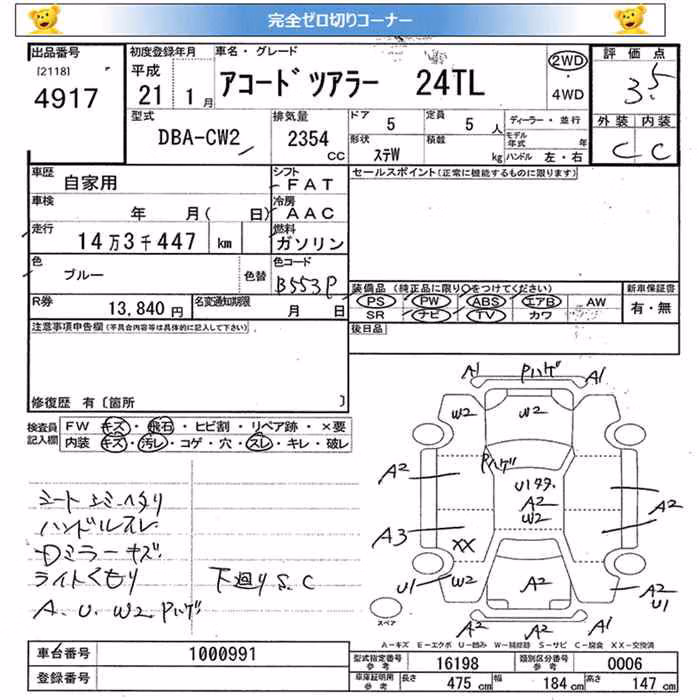 完全ゼロ切りコーナー
出品番号
[2118]
4917
初度登録年月
平成
21 1月
車名・グレード
アコードツアラー 24TL
2WD
・
4WD
評価点
3.5
外装 内装
C C
型式
DBA-CW2
排気量
2354
CC
ドア
5
定員
5人
形状
ステW
積載
kg
ディーラー・並行
モデル年式 年
ハンドル 左・右
車歴
自家用
シフト
FAT
車検
年 月( 日)
冷房
AAC
走行
14万3千447 km
燃料
ガソリン
色
ブルー
色替
色コード
B553P
R券
13,840円
名変通知期限
月 日
セールスポイント(正常に機能するものに限ります)
装備品 (純正品に限り○をつけてください)
PS PW ABS エアB AW
SR ナビ TV カワ
新車保証書
有・無
後日品
注意事項申告欄(不具合内容等は具体的に記入して下さい)
修復歴 有〔箇所 〕
検査員記入欄
FW キズ・飛石・ヒビ割・リペア跡・×要
内装 キズ・汚レ・コゲ・穴・スレ・キレ・破レ
ハンドルスレ
Dミラーキズ
ライトくもり 下廻りS.C
A. U. W2. Pハゲ
A1 Pハゲ A1
W2 W2
A2 Pハゲ
U1タタ
A2
W2
A2
A3
XX
A2
U1 W2 A2 A2
U1
A2 A2 A1
スペア
A-キズ E-エクボ U-凹み W-補修跡 S-サビ C-腐食 XX-交換済
車台番号
1000991
登録番号
型式指定番号 参考
16198
類別区分番号 参考
0006
車庫証明用 参考
長さ 475 cm 幅 184 cm 高さ 147 cm